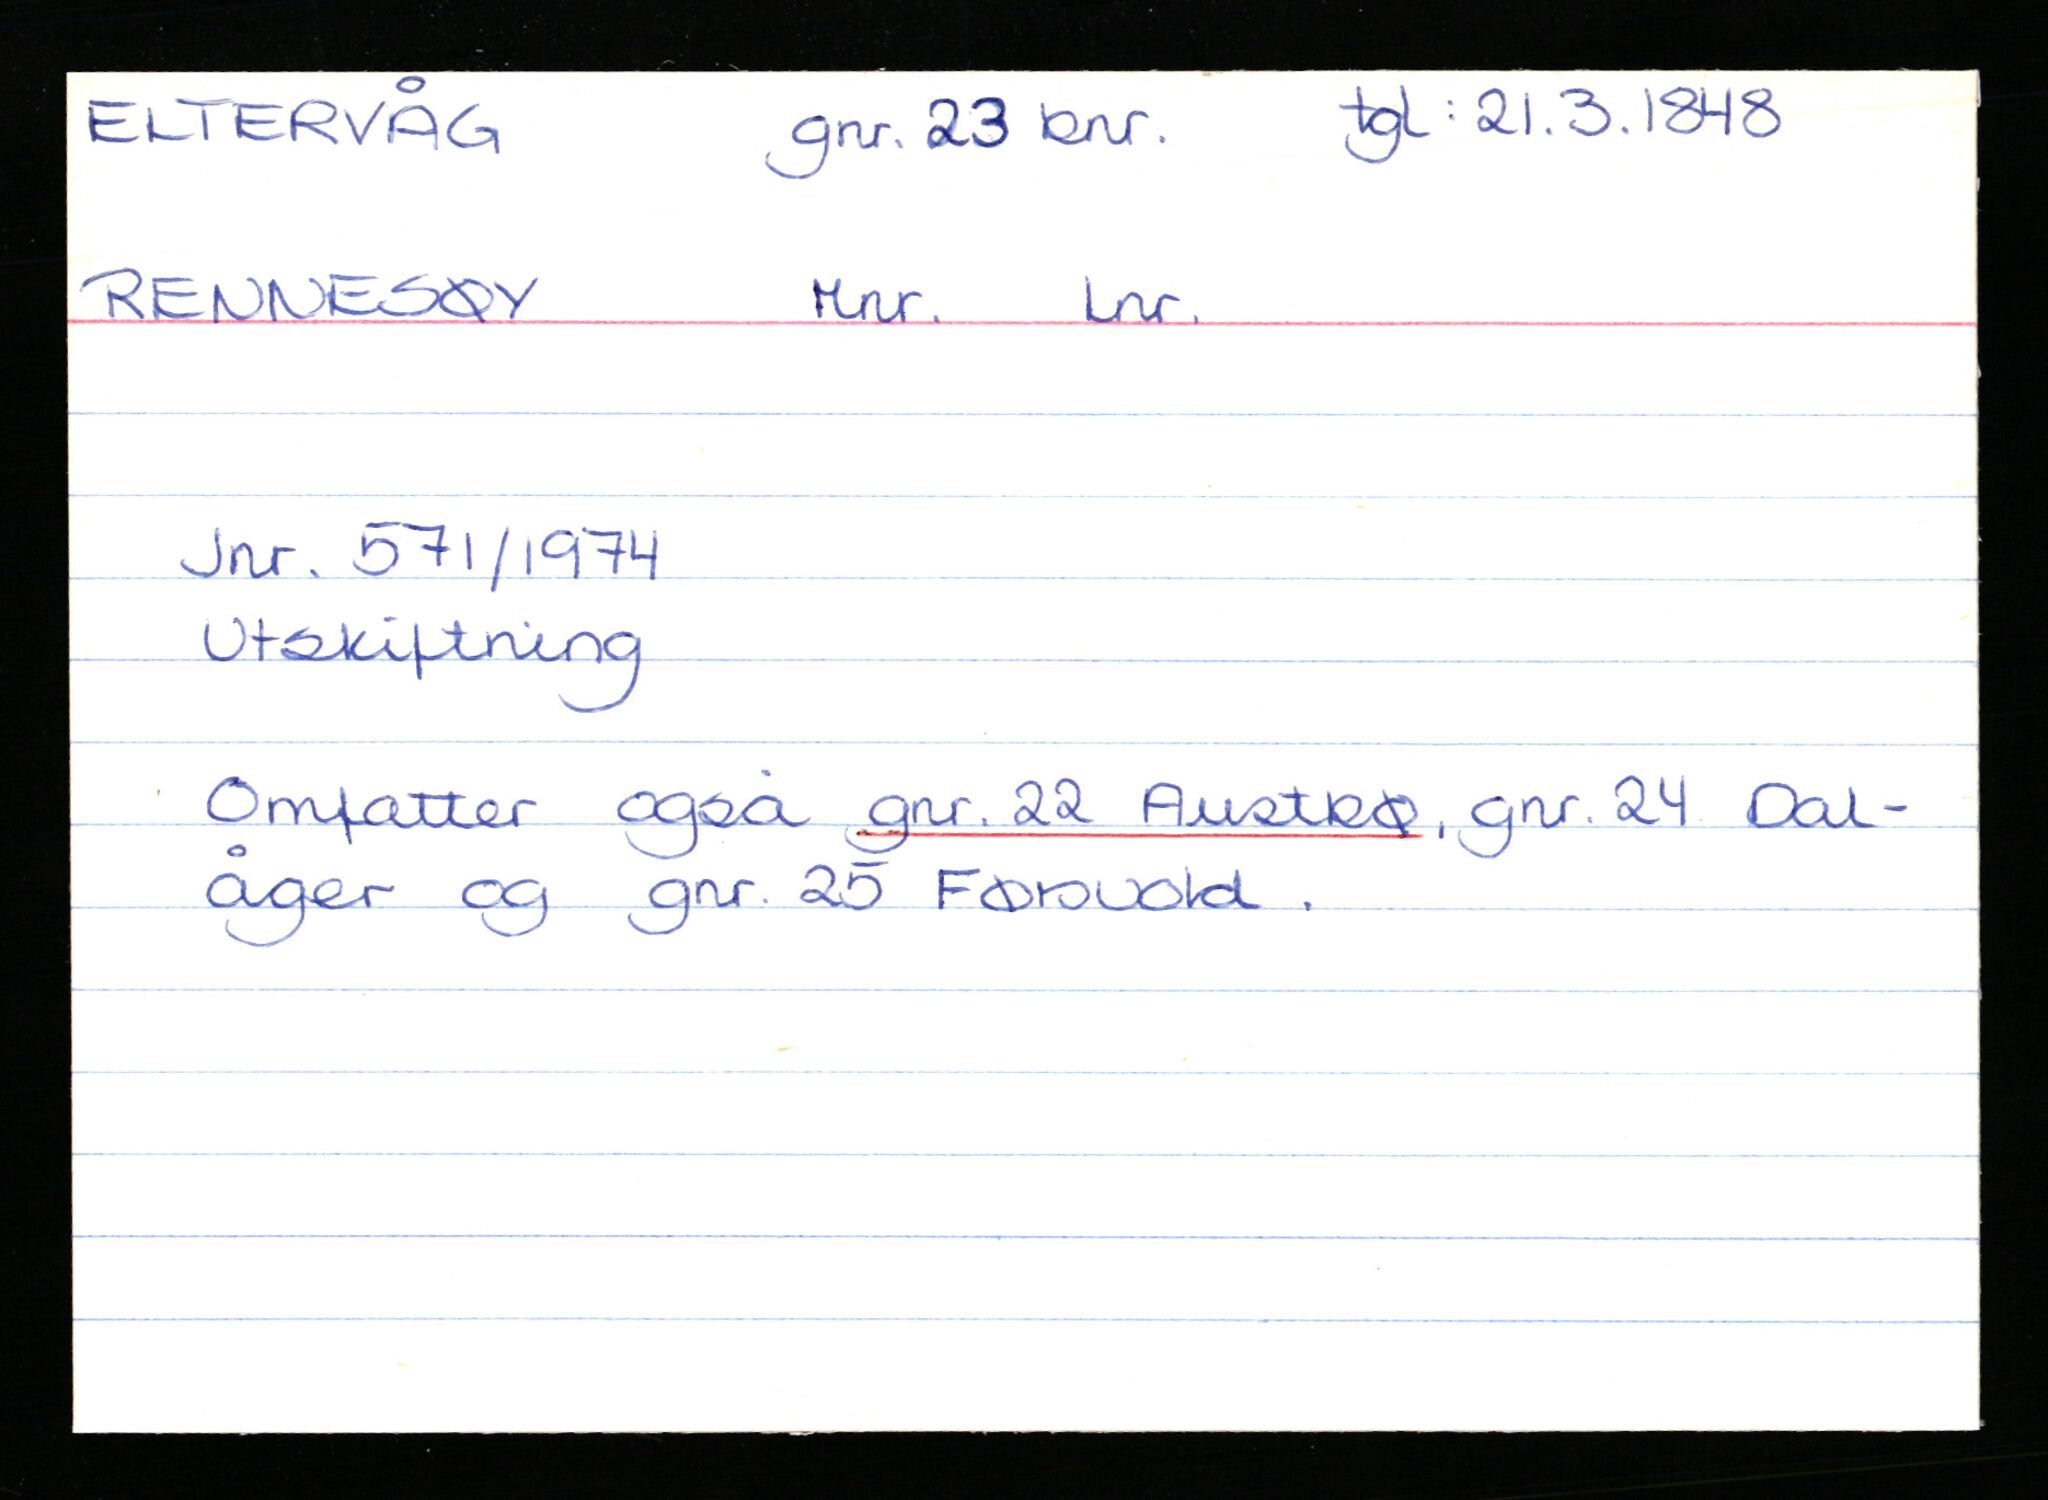 ELTERVÅG gnr. 23 bnr. tgl: 21.3.1848
RENNESØY Mnr. Lnr.
Jnr. 571/1974
Utskiftning
Omfatter også gnr. 22 Austbø, gnr. 24 Dal-
åger og gnr. 25 Førsvold.